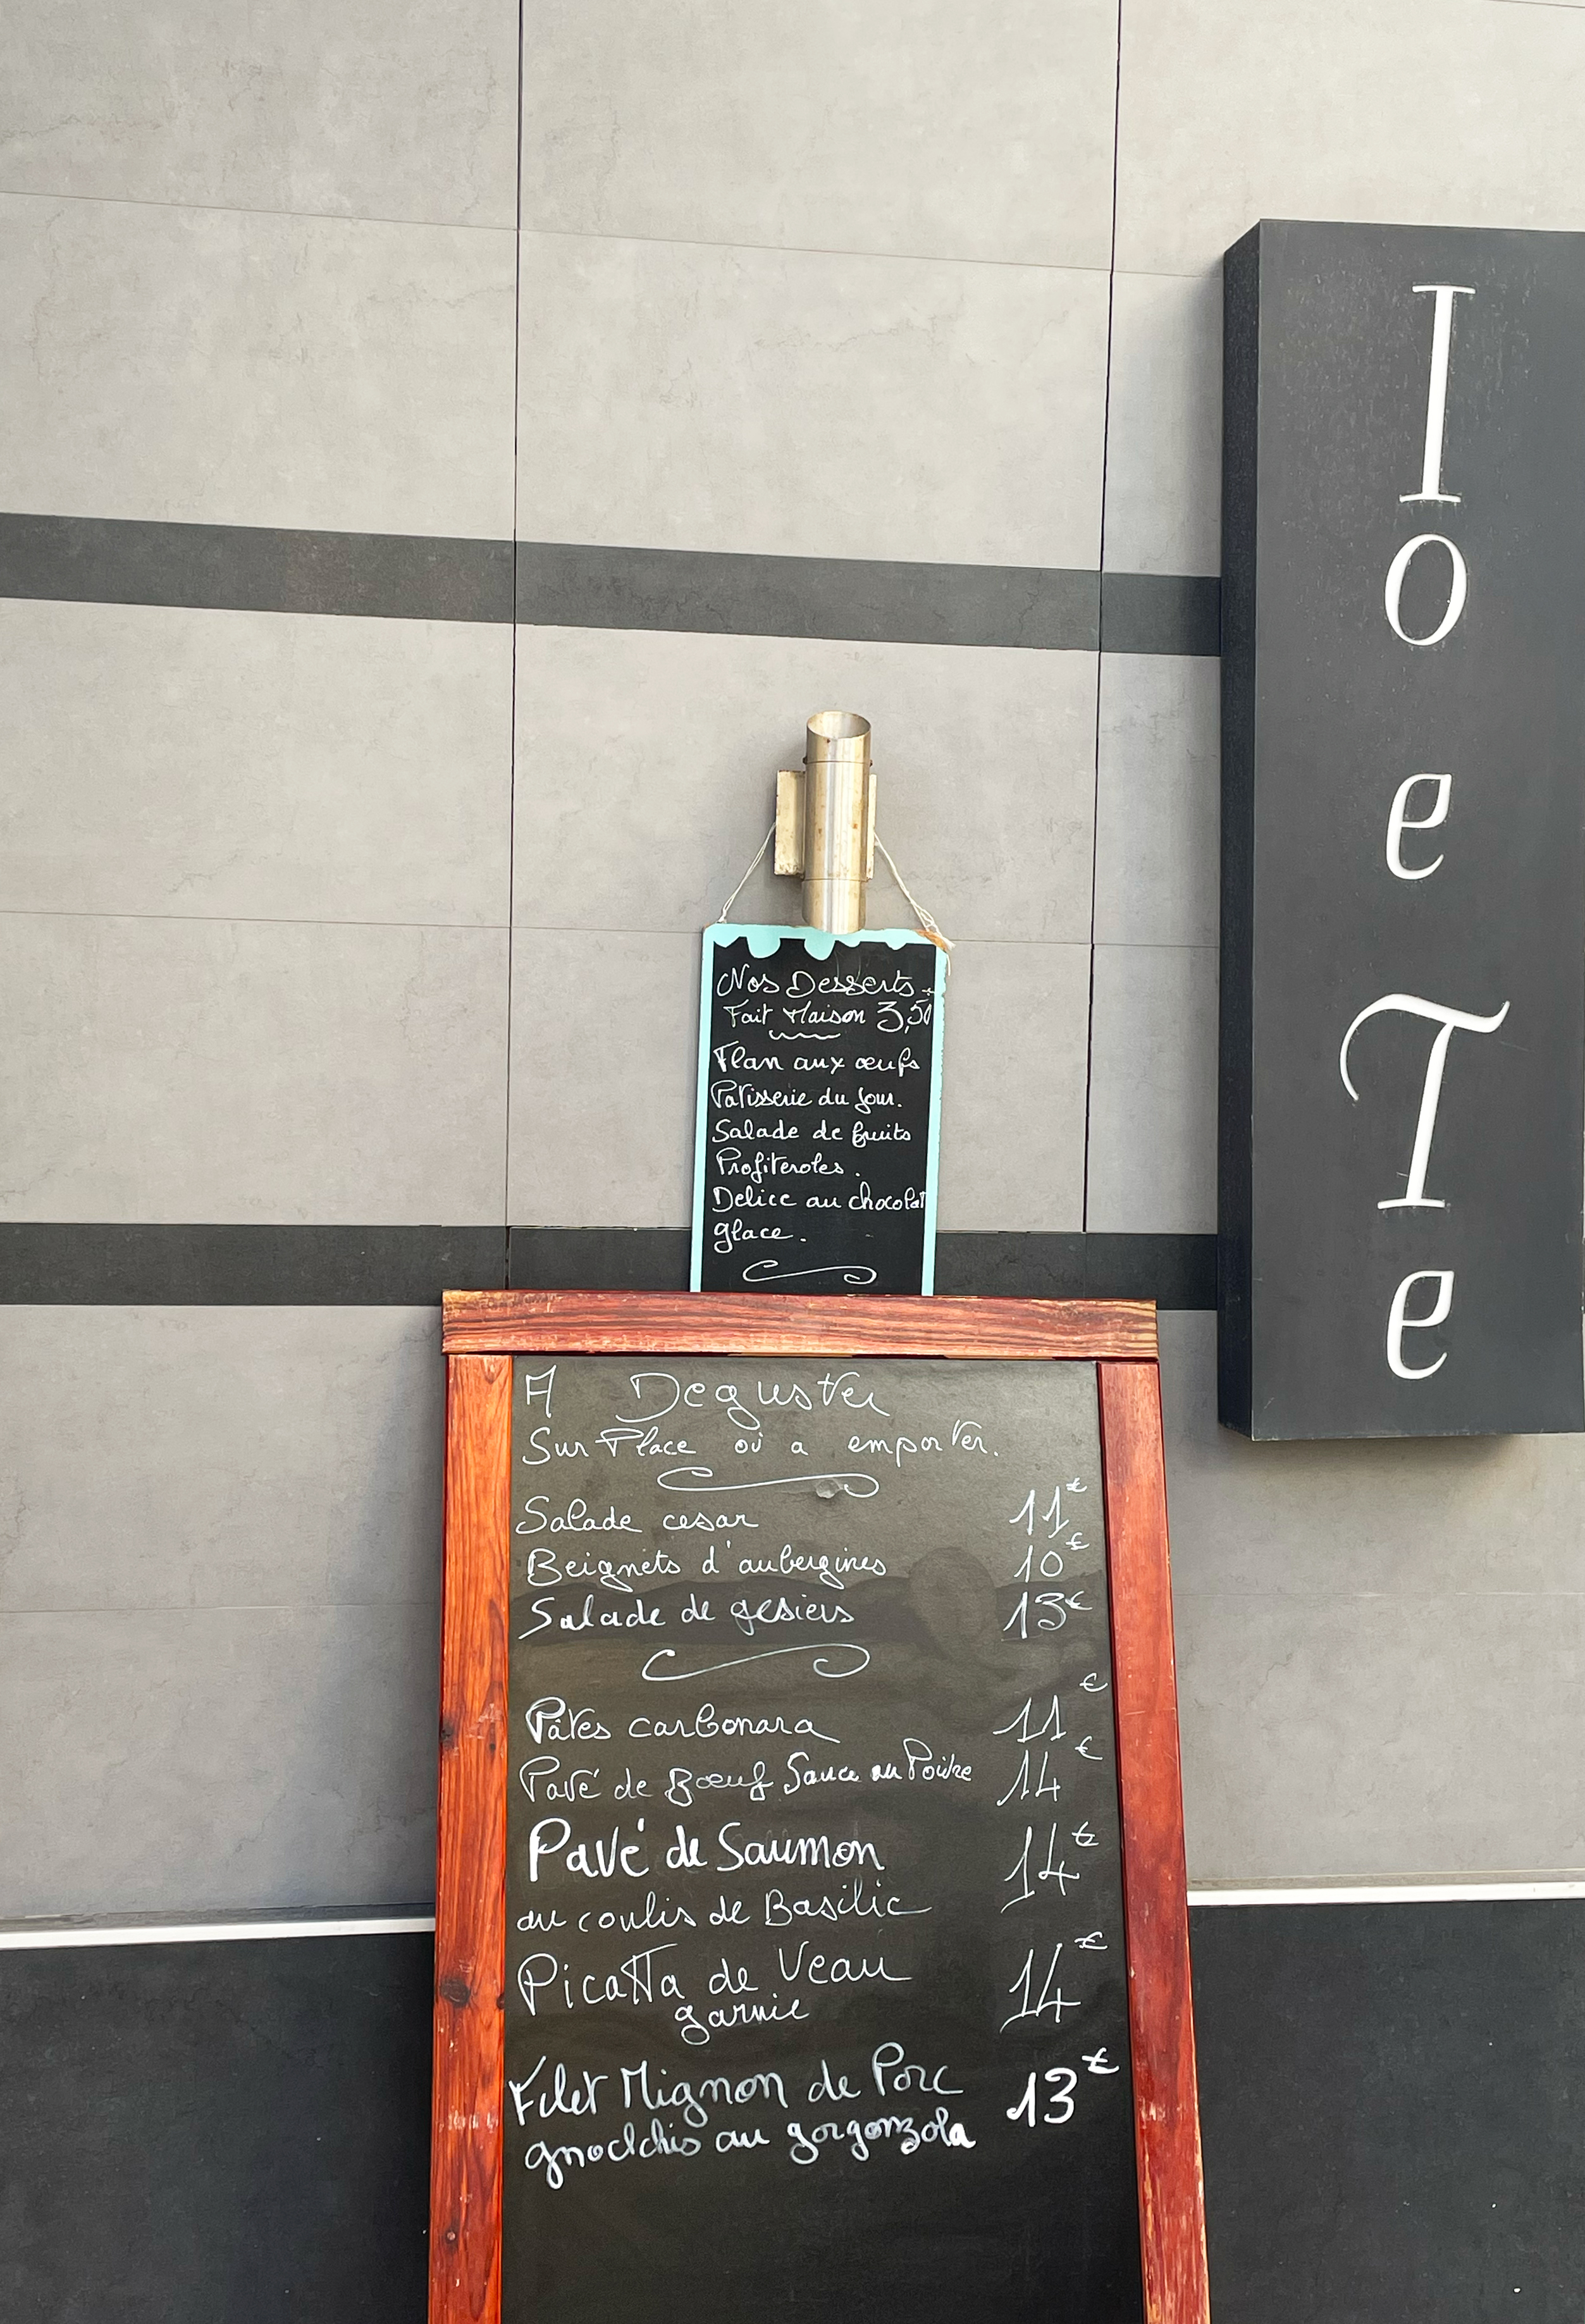 Nos Desserts
Fait Maison 3,50
Flan aux œufs
Patisserie du jour.
Salade de fruits
Profiteroles.
Delice au chocolat
glace.
A Deguster
Sur Place ou a emporter.
Salade cesar 11€
Beignets d'aubergines 10€
Salade de gesiers 13€
Pâtes carbonara 11€
Pavé de Bœuf Sauce au Poivre 14€
Pavé de Saumon 14€
au coulis de Basilic
Picatta de Veau 14€
garnie
Filet Mignon de Porc 13€
gnocchis au gorgonzola
I
o
e
T
e